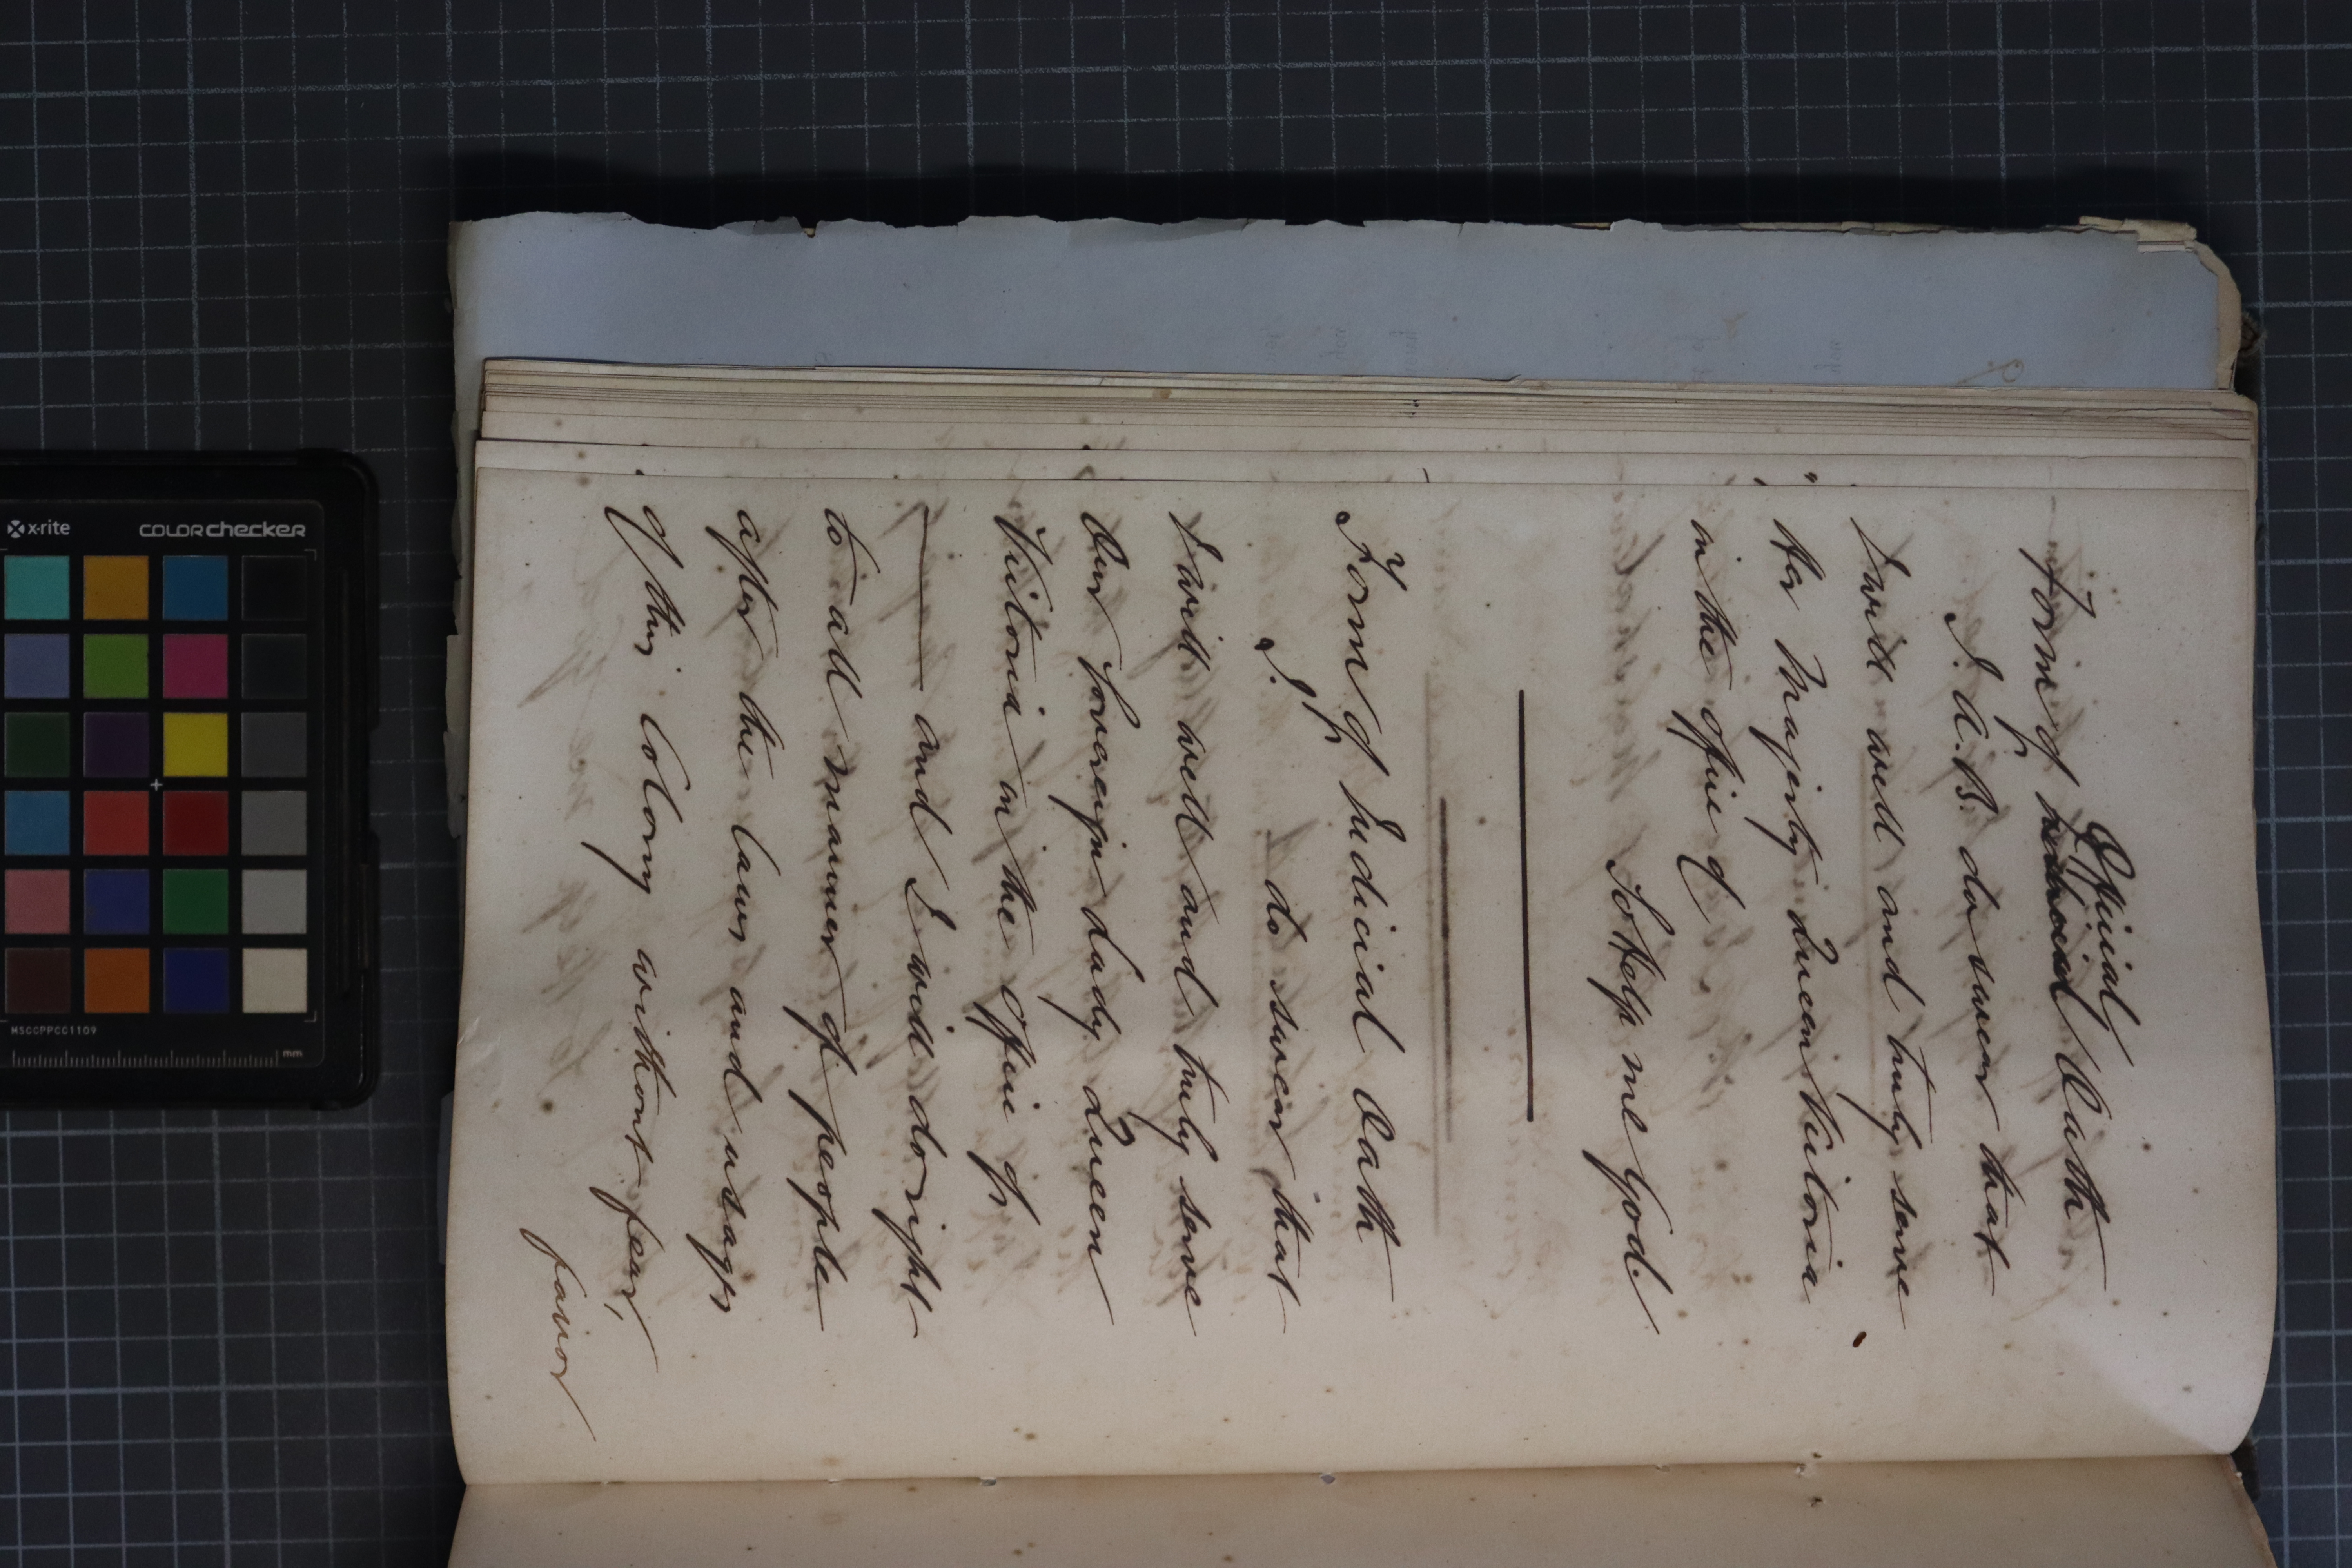 Official
Form of Judicial Oath
I. A. B. do swear that
I will well and truly serve
Her Majesty Queen Victoria
in the office of
So Help me God.
Form of Judicial Oath
I. do swear that
I will well and truly serve
Our Sovereign Lady Queen
Victoria in the office of
— and I will do right
to all manner of people
after the laws and usages
of this Colony without fear,
favor
x-rite
COLORchecker
MSCCPPCC1109
mm